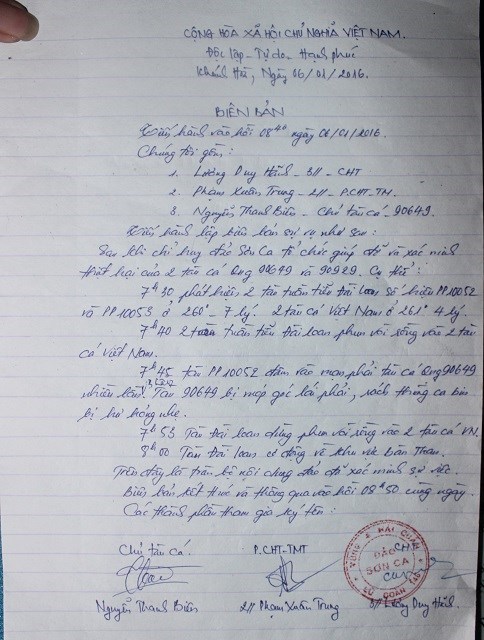 CỘNG HÒA XÃ HỘI CHỦ NGHĨA VIỆT NAM.
Độc lập - Tự do Hạnh phúc
Khánh Hòa, Ngày 06/01/2016.
BIÊN BẢN
Tiến hành vào hồi 08h40 ngày 06/01/2016.
Chúng tôi gồm:
1. Lương Duy Hành - 3// - CHT
2. Phạm Xuân Trung - 2// - P.CHT-TM.
3. Nguyễn Thanh Biên - Chủ tàu cá - 90649.
Tiến hành lập biên bản sự vụ như sau:
Sau khi chỉ huy đảo Sơn Ca tổ chức giúp đỡ và xác minh
thiệt hại của 2 tàu cá Qng 90649 và 90929. Cụ thể:
7h30, phát hiện 2 tàu tuần tiễu Đài Loan số hiệu PP10052
và PP10053 ở 260° - 7 lý. 2 tàu cá Việt Nam ở 261° 4 lý.
7h40 2 tàu tuần tiễu Đài loan phun vòi rồng vào 2 tàu
cá Việt Nam.
7h45 tàu PP10052 đâm vào mạn phải tàu cá Qng90649
nhiều lần. Tàu 90649 bị móp góc lái phải, rách
bị hư hỏng nhẹ.
7h55 Tàu Đài loan dừng phun vòi rồng vào 2 tàu cá VN.
8h00 Tàu Đài loan cơ động về khu vực Bàn Than.
Trên đây là toàn bộ nội dung đảo đã xác minh sự việc
Biên bản kết thúc và thông qua vào hồi 08h50 cùng ngày.
Các thành phần tham gia ký tên:
Chủ tàu cá. P.CHT-TMT CHT
VÙNG 4 HẢI QUÂN
ĐẢO
SƠN CA
LỮ ĐOÀN 146
Nguyễn Thanh Biên 2// Phạm Xuân Trung 3// Lương Duy Hành